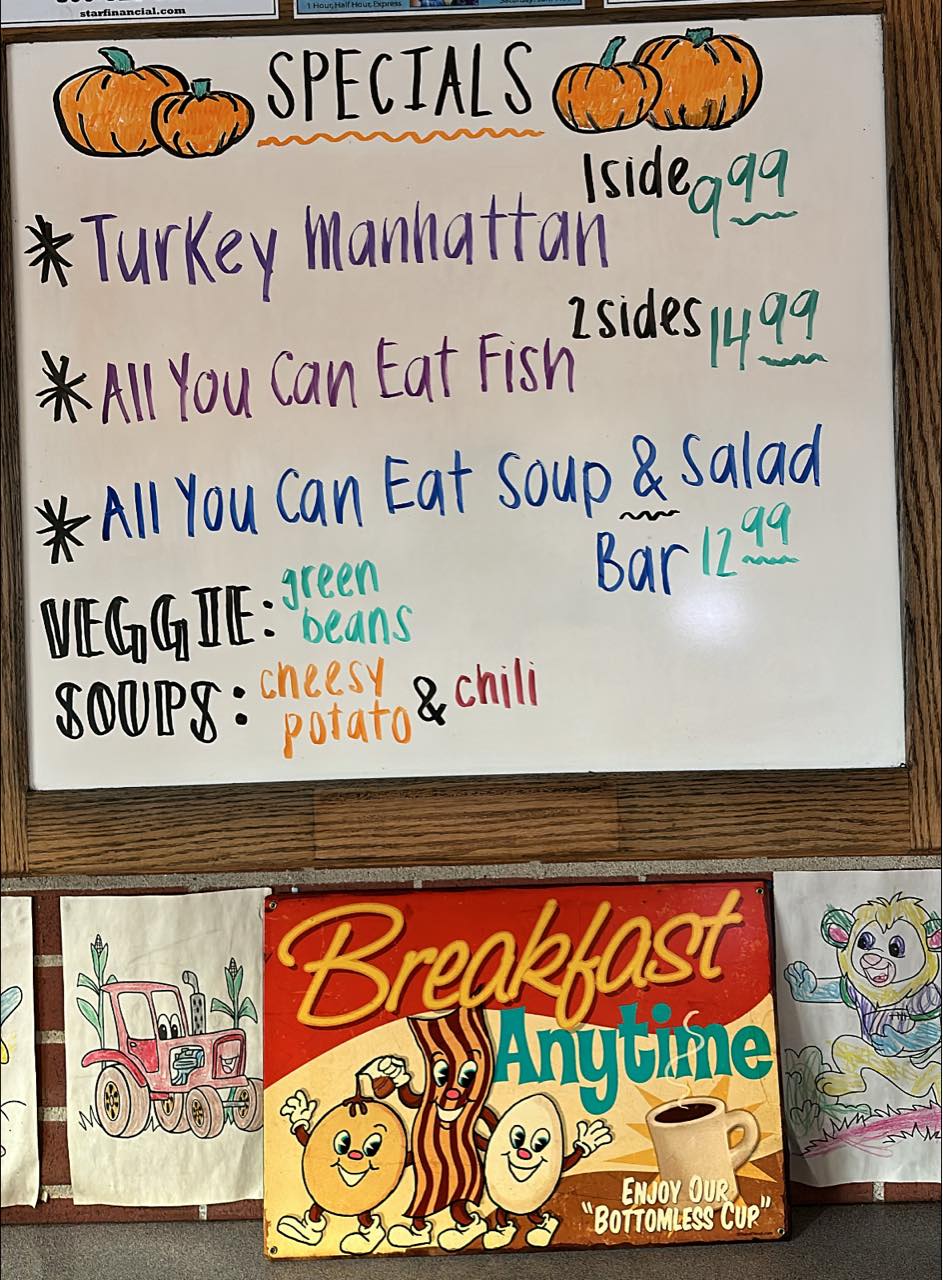 starfinancial.com
1 Hour, Half Hour, Express
SPECIALS
1side 9 99
* Turkey Manhattan
2sides 14 99
* All You Can Eat Fish
* All You Can Eat Soup & Salad
Bar 12 99
VEGGIE: green
beans
SOUPS: cheesy & chili
potato
Breakfast
Anytime
ENJOY OUR
"BOTTOMLESS CUP"